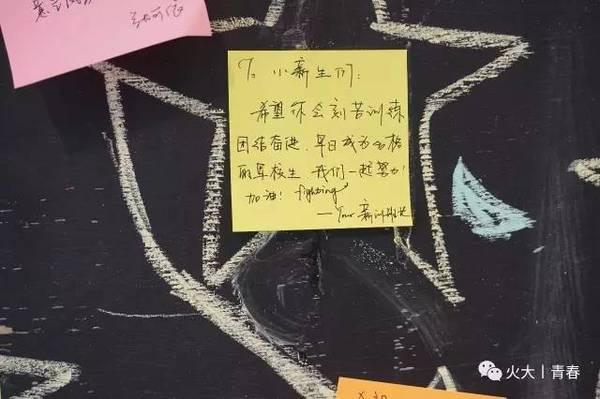 To 小新生们:
希望你会刻苦训练
团结奋进、早日成为合格
的军校生 我们一起努力!
加油! fighting
—Your 新训
火大丨青春